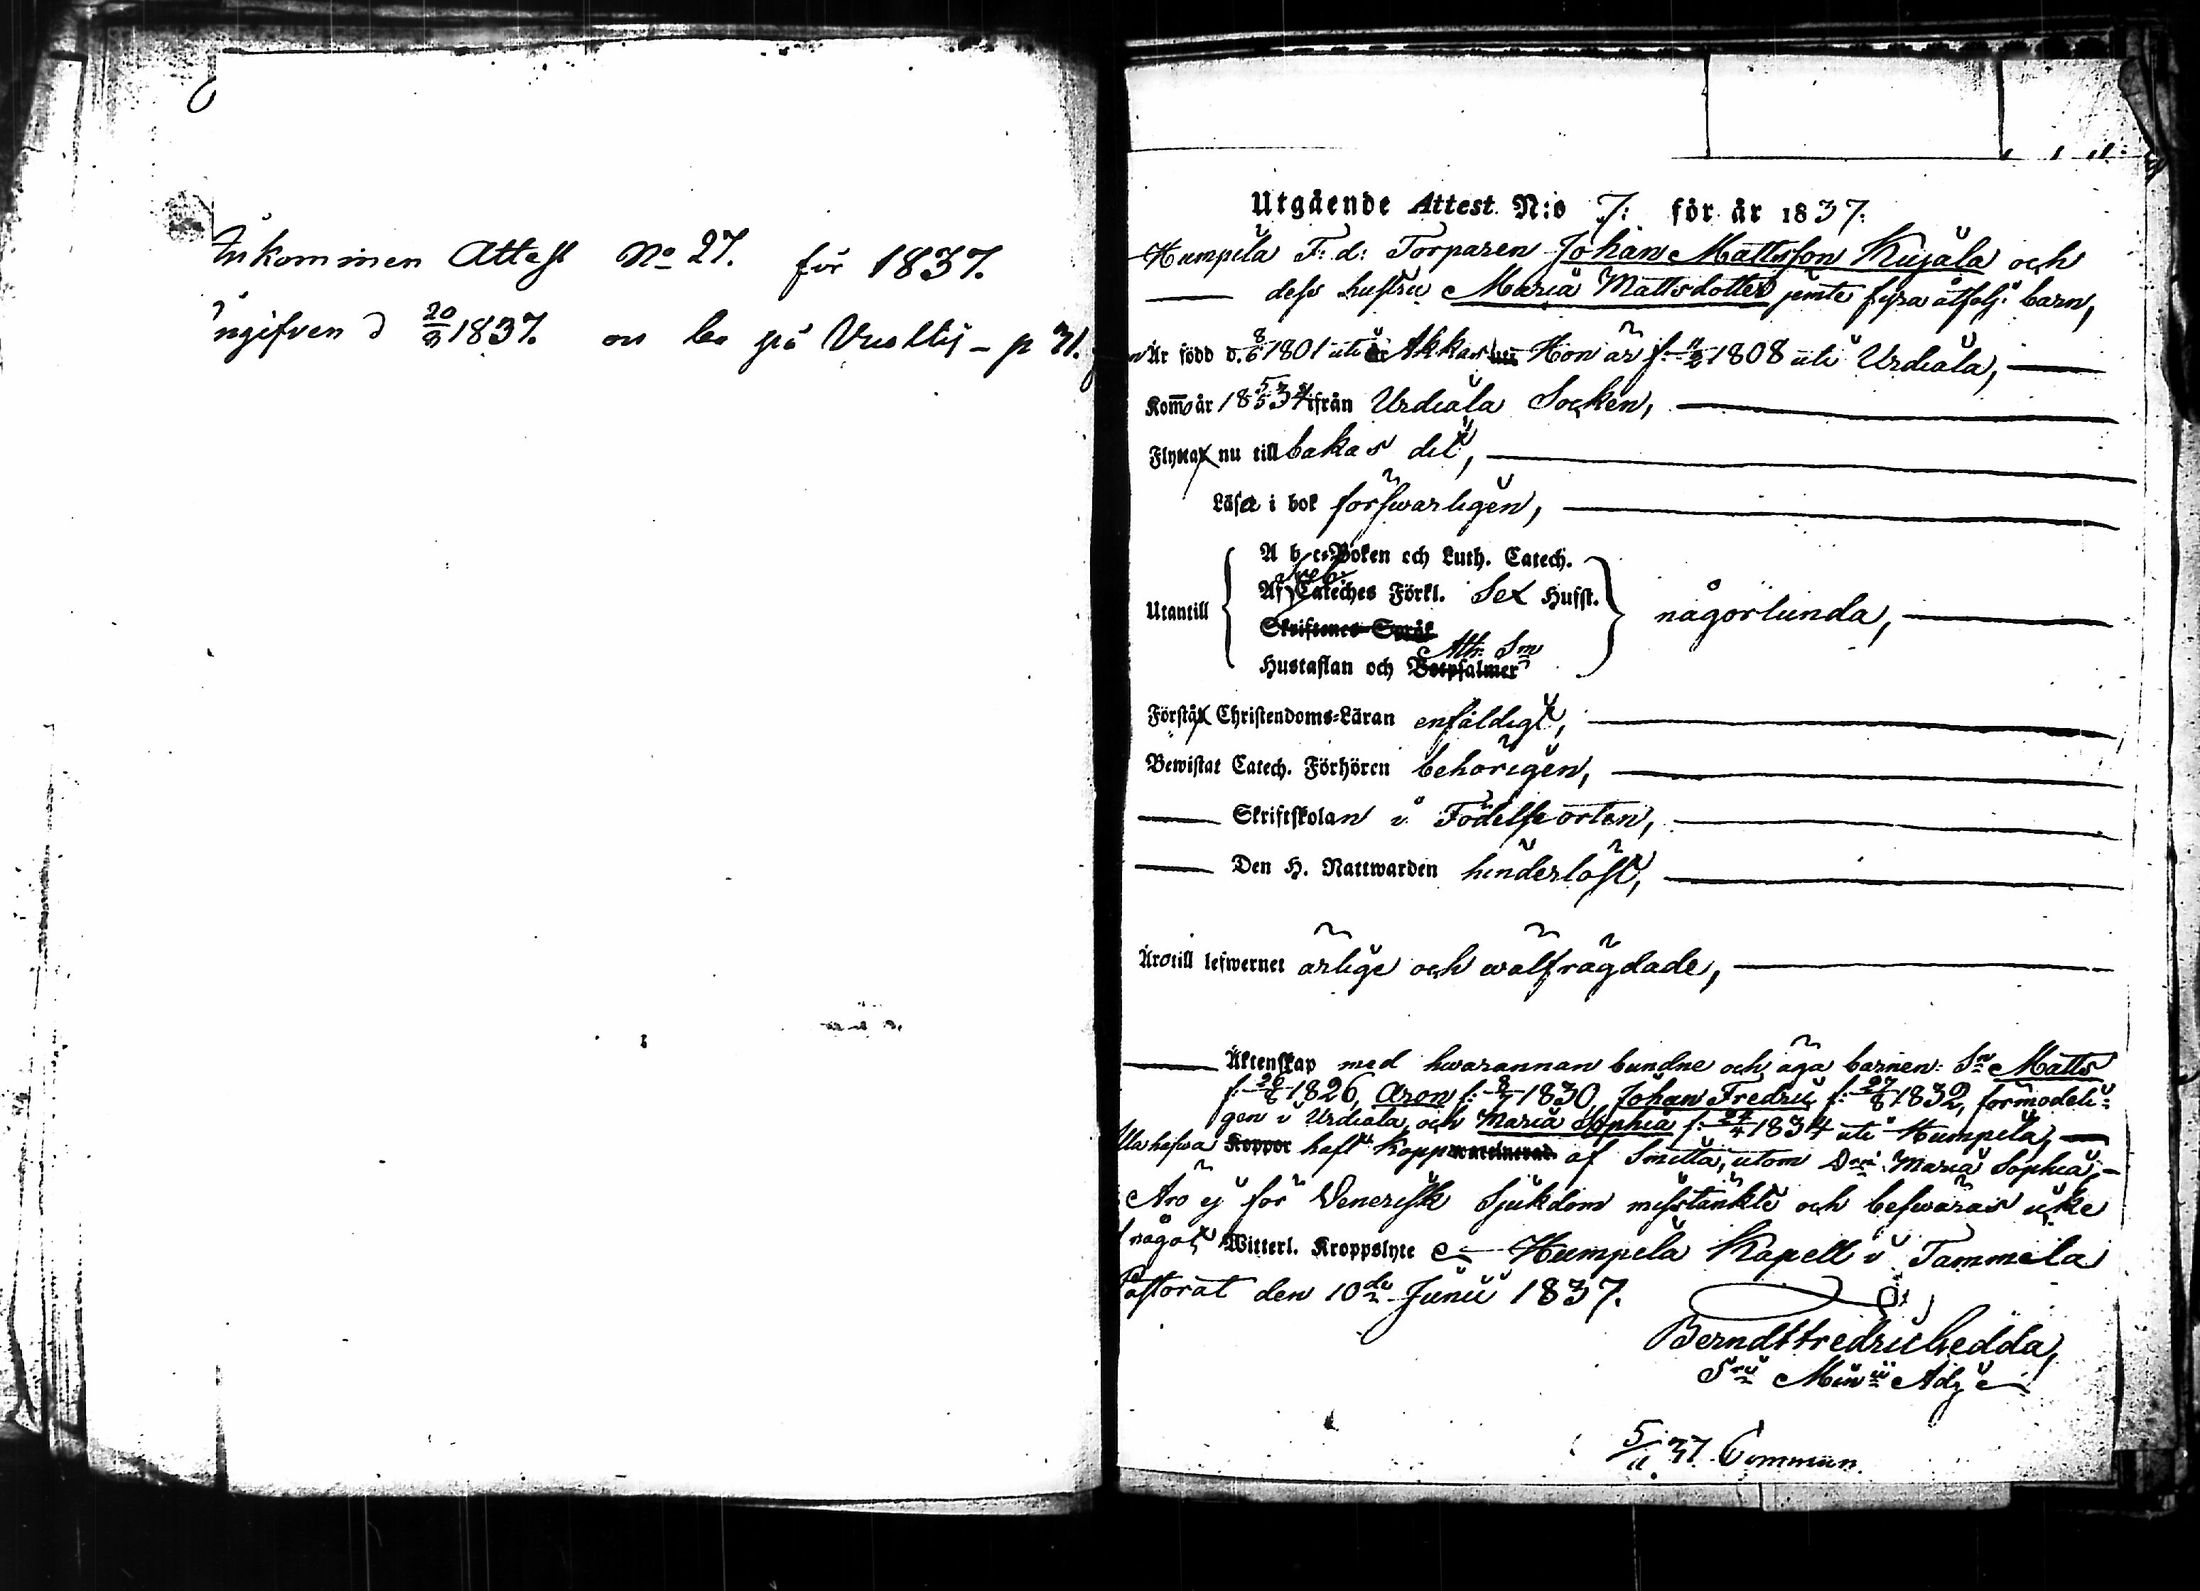 Inkommen Attest No 27. för 1837.
ingifven d 20/9 1837. bo på p 31.
Utgående Attest N:o 7: för år 1837.
Humpila F: d: Torparen Johan Mattsson Kujala och
dess hustru Maria Mattsdotter jemte fyra åtfölj: barn,
Är född d. 8/6 1801 uti Akkas Hon är f. 1808 uti Urdiala,
Kommo år 18 5/5 34 ifrån Urdiala Socken,
Flytta nu tillbakas dit,
Läsa i bok försvarligen,
A b c-Boken och Luth. Catech.
Af Sveb: Cateches Förkl. Sex Husst.
Utantill någorlunda,
Skriftenes Språk
Hustaflan och Ath: Sm Botpsalmer
Förstå Christendoms-Läran enfaldigt,
Bewistat Catech. Förhören behörigen,
Skriftskolan i Födelseorten,
Den H. Nattwarden hinderlöst,
Äro till lefwernet ärlige och wälfrägdade,
Äktenskap med hwarannan bundne och äga barnen: Sn Matts
f. 26/8 1826, Aron f. 8/7 1830, Johan Fredric f. 27/8 1832, förmodeli-
gen i Urdiala, och Maria Sophia f. 24/4 1834 uti Humpila,
Alla hafwa haft Kopp af Smitta, utom Dri Maria Sophia,
Äro ej för Venerisk Sjukdom misstänkte och beswäras icke
af något Witterl. Kroppslyte Humpila Kapell i Tammela
Pastorat den 10de Junii 1837.
Berndt Fredric Gedda,
Sri Minii Adj:
5/11 37 Commun.